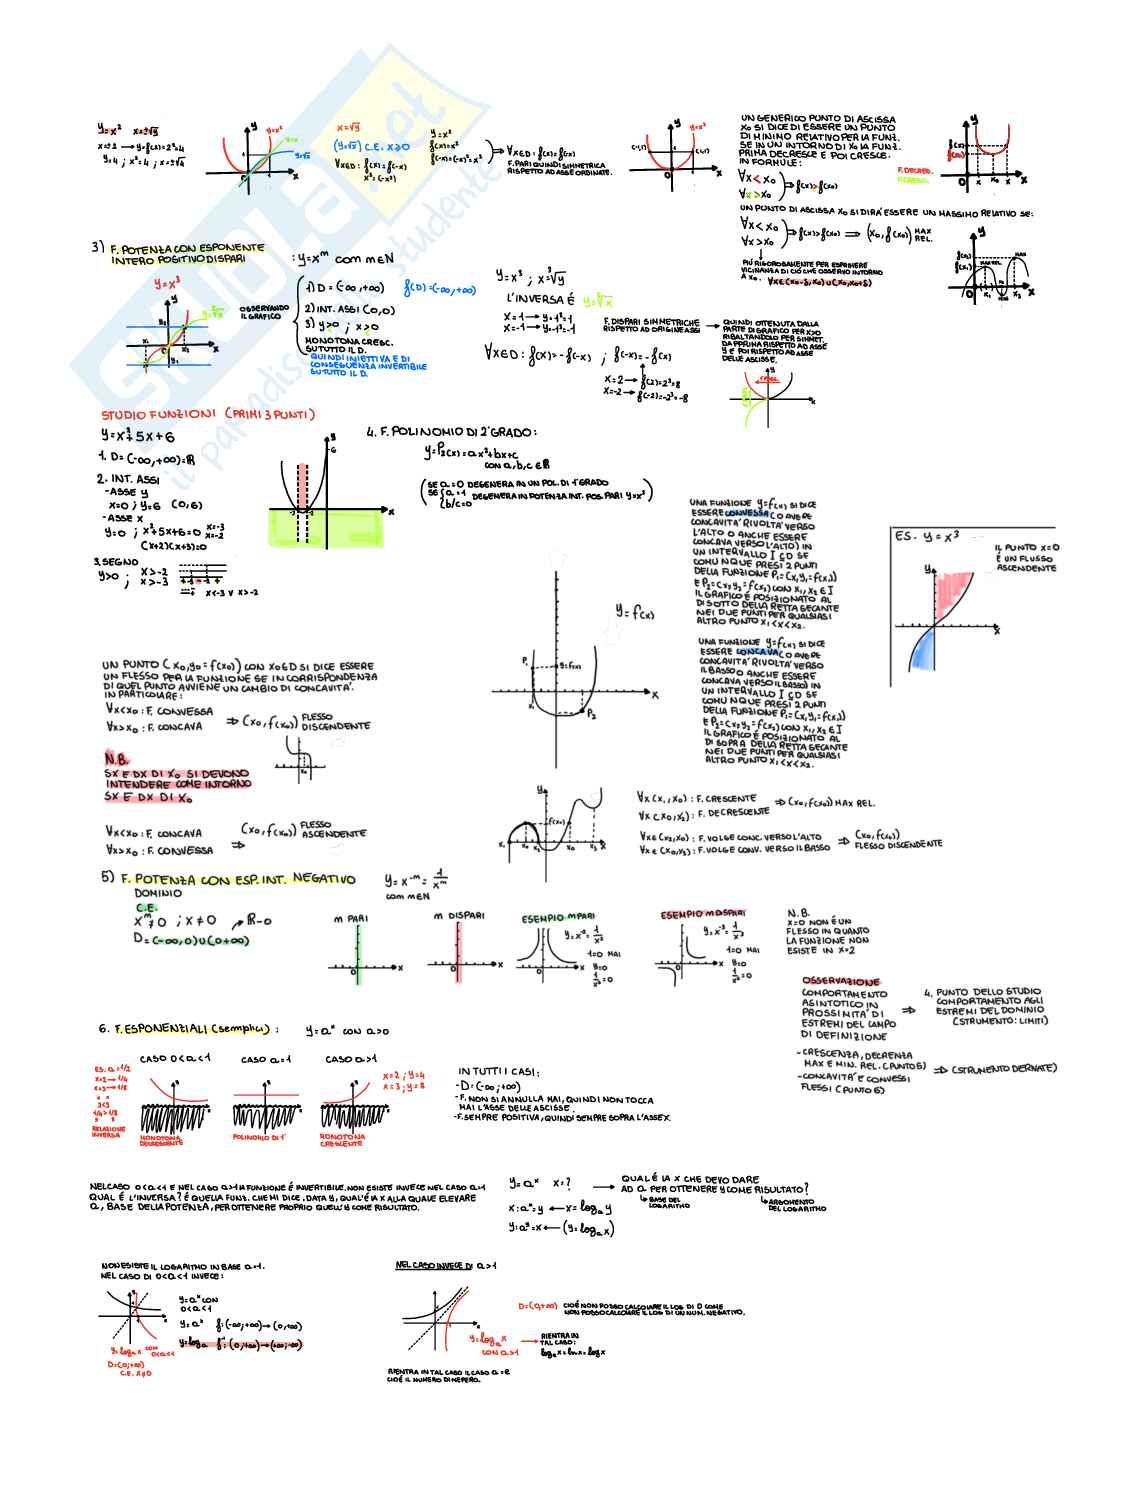 y=x²
x=±√y
x=2 → y=f(2)=2²=4
y=4 ; x²=4 ; x=±√4
y=x²
y=x
y=√x
x=√y
(y=√x) C.E. x≥0
∀x∈D: f(x)=f(-x)
x²=(-x²)
y=x²
f(x)=x²
f(-x)=(-x)²=x²
⇒ ∀x∈D: f(x)=f(-x)
F. PARI QUINDI SIMMETRICA
RISPETTO AD ASSE ORDINATE.
y=x²
(-1,1)
(1,1)
UN GENERICO PUNTO DI ASCISSA
x₀ SI DICE DI ESSERE UN PUNTO
DI MINIMO RELATIVO PER LA FUNZ.
SE IN UN INTORNO DI x₀ LA FUNZ.
PRIMA DECRESCE E POI CRESCE.
IN FORMULE:
∀x < x₀
∀x > x₀
⇒ f(x)>f(x₀)
F. DECRESC.
F. CRESC.
UN PUNTO DI ASCISSA x₀ SI DIRA' ESSERE UN MASSIMO RELATIVO SE:
∀x < x₀
∀x > x₀
⇒ f(x)>f(x₀) ⇒ (x₀, f(x₀)) MAX REL.
PIÙ RIGOROSAMENTE PER ESPRIMERE
VICINANZA DI CIÒ CHE OSSERVO INTORNO
A x₀. ∀x∈(x₀-δ, x₀)∪(x₀,x₀+δ)
3) F. POTENZA CON ESPONENTE
INTERO POSITIVO DISPARI
: y=xᵐ con m∈N
y=x³
y=∛x
OSSERVANDO
IL GRAFICO
1) D=(-∞,+∞)
f(D)=(-∞,+∞)
2) INT. ASSI (0,0)
3) y>0 ; x>0
MONOTONA CRESC.
SU TUTTO IL D.
QUINDI INIETTIVA E DI
CONSEGUENZA INVERTIBILE
SU TUTTO IL D.
y=x³ ; x=∛y
L'INVERSA È y=∛x
x=1 → y=1³=1
x=-1 → y=-1³=-1
F. DISPARI SIMMETRICHE
RISPETTO AD ORIGINE ASSI
QUINDI OTTENUTA DALLA
PARTE DI GRAFICO PER x>0
RIBALTANDOLO PER SIMMET.
DAPPRIMA RISPETTO AD ASSE
y E POI RISPETTO AD ASSE
DELLE ASCISSE.
∀x∈D: f(x)=-f(-x) ; f(-x)=-f(x)
x=2 → f(2)=2³=8
x=-2 → f(-2)=-2³=-8
STUDIO FUNZIONI (PRIMI 3 PUNTI)
y=x²+5x+6
1. D=(-∞,+∞)=R
2. INT. ASSI
-ASSE y
x=0 ; y=6 (0,6)
-ASSE x
y=0 ; x²+5x+6=0 x=-3 x=-2
(x+2)(x+3)=0
3. SEGNO
y>0 ; x>-2
x>-3
x<-3 v x>-2
4. F. POLINOMIO DI 2°GRADO:
y=P₂(x)=ax²+bx+c
con a,b,c∈R
SE a=0 DEGENERA IN UN POL. DI 1°GRADO
SE a=1
b/c=0
DEGENERA IN POTENZA INT. POS. PARI y=x²
UNA FUNZIONE y=f(x) SI DICE
ESSERE CONVESSA (O AVERE
CONCAVITA' RIVOLTA' VERSO
L'ALTO O ANCHE ESSERE
CONCAVA VERSO L'ALTO) IN
UN INTERVALLO I⊂D SE
COMUNQUE PRESI 2 PUNTI
DELLA FUNZIONE P₁=(x₁,y₁=f(x₁))
E P₂=(x₂,y₂=f(x₂)) CON x₁,x₂∈I
IL GRAFICO È POSIZIONATO AL
DI SOTTO DELLA RETTA SECANTE
NEI DUE PUNTI PER QUALSIASI
ALTRO PUNTO x₁<x<x₂.
UNA FUNZIONE y=f(x) SI DICE
ESSERE CONCAVA (O AVERE
CONCAVITA' RIVOLTA' VERSO
IL BASSO O ANCHE ESSERE
CONCAVA VERSO IL BASSO) IN
UN INTERVALLO I⊂D SE
COMUNQUE PRESI 2 PUNTI
DELLA FUNZIONE P₁=(x₁,y₁=f(x₁))
E P₂=(x₂,y₂=f(x₂)) CON x₁,x₂∈I
IL GRAFICO È POSIZIONATO AL
DI SOPRA DELLA RETTA SECANTE
NEI DUE PUNTI PER QUALSIASI
ALTRO PUNTO x₁<x<x₂.
ES. y=x³
IL PUNTO x=0
È UN FLUSSO
ASCENDENTE
y=f(x)
UN PUNTO (x₀,y₀=f(x₀)) CON x₀∈D SI DICE ESSERE
UN FLESSO PER LA FUNZIONE SE IN CORRISPONDENZA
DI QUEL PUNTO AVVIENE UN CAMBIO DI CONCAVITA'.
IN PARTICOLARE:
∀x<x₀: F. CONVESSA
∀x>x₀: F. CONCAVA
⇒ (x₀, f(x₀)) FLESSO DISCENDENTE
N.B.
SX E DX DI x₀ SI DEVONO
INTENDERE COME INTORNO
SX E DX DI x₀
∀x<x₀: F. CONCAVA
∀x>x₀: F. CONVESSA
⇒ (x₀, f(x₀)) FLESSO ASCENDENTE
∀x(x₁,x₀): F. CRESCENTE
∀x(x₀,x₂): F. DECRESCENTE
⇒ (x₀, f(x₀)) MAX REL.
∀x∈(x₂,x₀): F. VOLGE CONC. VERSO L'ALTO
∀x∈(x₀,x₃): F. VOLGE CONV. VERSO IL BASSO
⇒ (x₀, f(x₀))
FLESSO DISCENDENTE
5) F. POTENZA CON ESP. INT. NEGATIVO
y=x⁻ᵐ=1/xᵐ
con m∈N
DOMINIO
C.E.
xᵐ≠0 ; x≠0 → R-0
D=(-∞,0)∪(0+∞)
m PARI
m DISPARI
ESEMPIO m PARI
y=x⁻²=1/x²
1=0 MAI
y=0
1/x²=0
ESEMPIO m DISPARI
y=x⁻³=1/x³
1=0 MAI
y=0
1/x³=0
N.B.
x=0 NON È UN
FLESSO IN QUANTO
LA FUNZIONE NON
ESISTE IN x=2
OSSERVAZIONE
COMPORTAMENTO
ASINTOTICO IN
PROSSIMITA' DI
ESTREMI DEL CAMPO
DI DEFINIZIONE
⇒ 4. PUNTO DELLO STUDIO
COMPORTAMENTO AGLI
ESTREMI DEL DOMINIO
(STRUMENTO: LIMITI)
-CRESCENZA, DECRENZA
MAX E MIN. REL. (PUNTO 5)
-CONCAVITA' E CONVESSI
FLESSI (PUNTO 6)
⇒ (STRUMENTO DERIVATE)
6. F. ESPONENZIALI (semplici) : y=aˣ CON a>0
ES. a=1/2
x=2 → 1/4
x=3 → 1/8
2<3
1/4>1/8
RELAZIONE
INVERSA
CASO 0<a<1
CASO a=1
CASO a>1
x=2 ; y=4
x=3 ; y=8
MONOTONA
DECRESCENTE
POLINOMIO DI 1°
MONOTONA
CRESCENTE
IN TUTTI I CASI:
-D=(-∞;+∞)
-F. NON SI ANNULLA MAI, QUINDI NON TOCCA
MAI L'ASSE DELLE ASCISSE.
-F. SEMPRE POSITIVA, QUINDI SEMPRE SOPRA L'ASSE X.
NEL CASO 0<a<1 E NEL CASO a>1 LA FUNZIONE È INVERTIBILE. NON ESISTE INVECE NEL CASO a=1
QUAL È L'INVERSA? È QUELLA FUNZ. CHE MI DICE, DATA y, QUAL'È LA x ALLA QUALE ELEVARE
a, BASE DELLA POTENZA, PER OTTENERE PROPRIO QUELL'y COME RISULTATO.
y=aˣ x=? → QUAL È LA x CHE DEVO DARE
AD a PER OTTENERE y COME RISULTATO?
BASE DEL
LOGARITMO
ARGOMENTO
DEL LOGARITMO
x: aˣ=y ← x=logₐy
y: aʸ=x ← (y=logₐx)
NON ESISTE IL LOGARITMO IN BASE a=1.
NEL CASO DI 0<a<1 INVECE:
y=aˣ con
0<a<1
y=aˣ f:(-∞;+∞)→(0,+∞)
y=logₐ f⁻¹:(0,+∞)→(+∞;-∞)
y=logₐx con
0<a<1
D=(0;+∞)
C.E. x≠0
NEL CASO INVECE DI a>1
D=(0,+∞) CIOÈ NON POSSO CALCOLARE IL LOG DI 0 COME
NON POSSO CALCOLARE IL LOG DI UN NUM. NEGATIVO.
y=logₐx
CON a>1
→ RIENTRA IN
TAL CASO:
logₑx=lnx=logx
RIENTRA IN TAL CASO IL CASO a=e
CIOÈ IL NUMERO DI NEPERO.